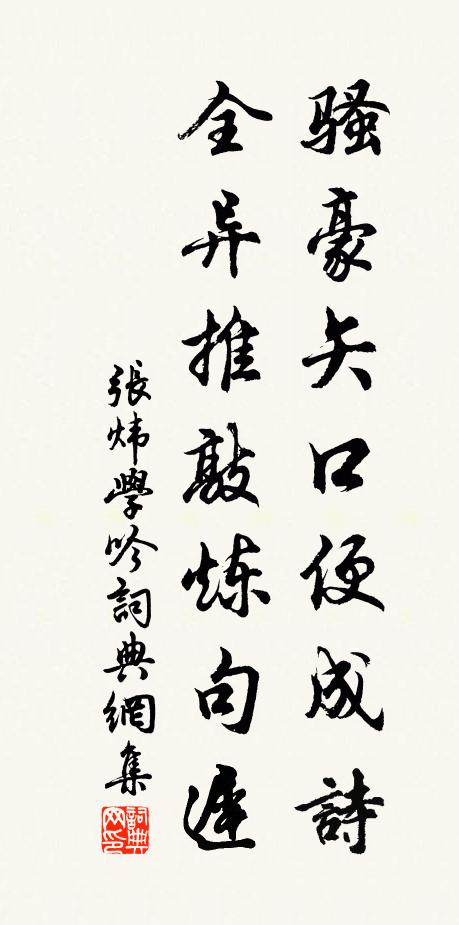 骚豪矢口便成詩
全异推敲炼句遲
張炜學吟詞典網集
詞典網印